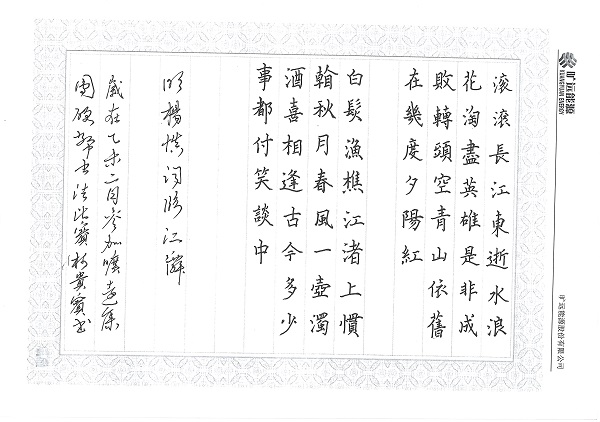 旷远能源
KUANGYUAN ENERGY
滚滚長江東逝水浪
花淘盡英雄是非成
敗轉頭空青山依舊
在幾度夕陽紅
白髮漁樵江渚上慣
秋月春風一壺濁
酒喜相逢古今多少
事都付笑談中
明楊慎詞臨江
歲在乙未二月參加曠遠集
團硬筆書法比賽 貴賓書
旷远能源股份有限公司